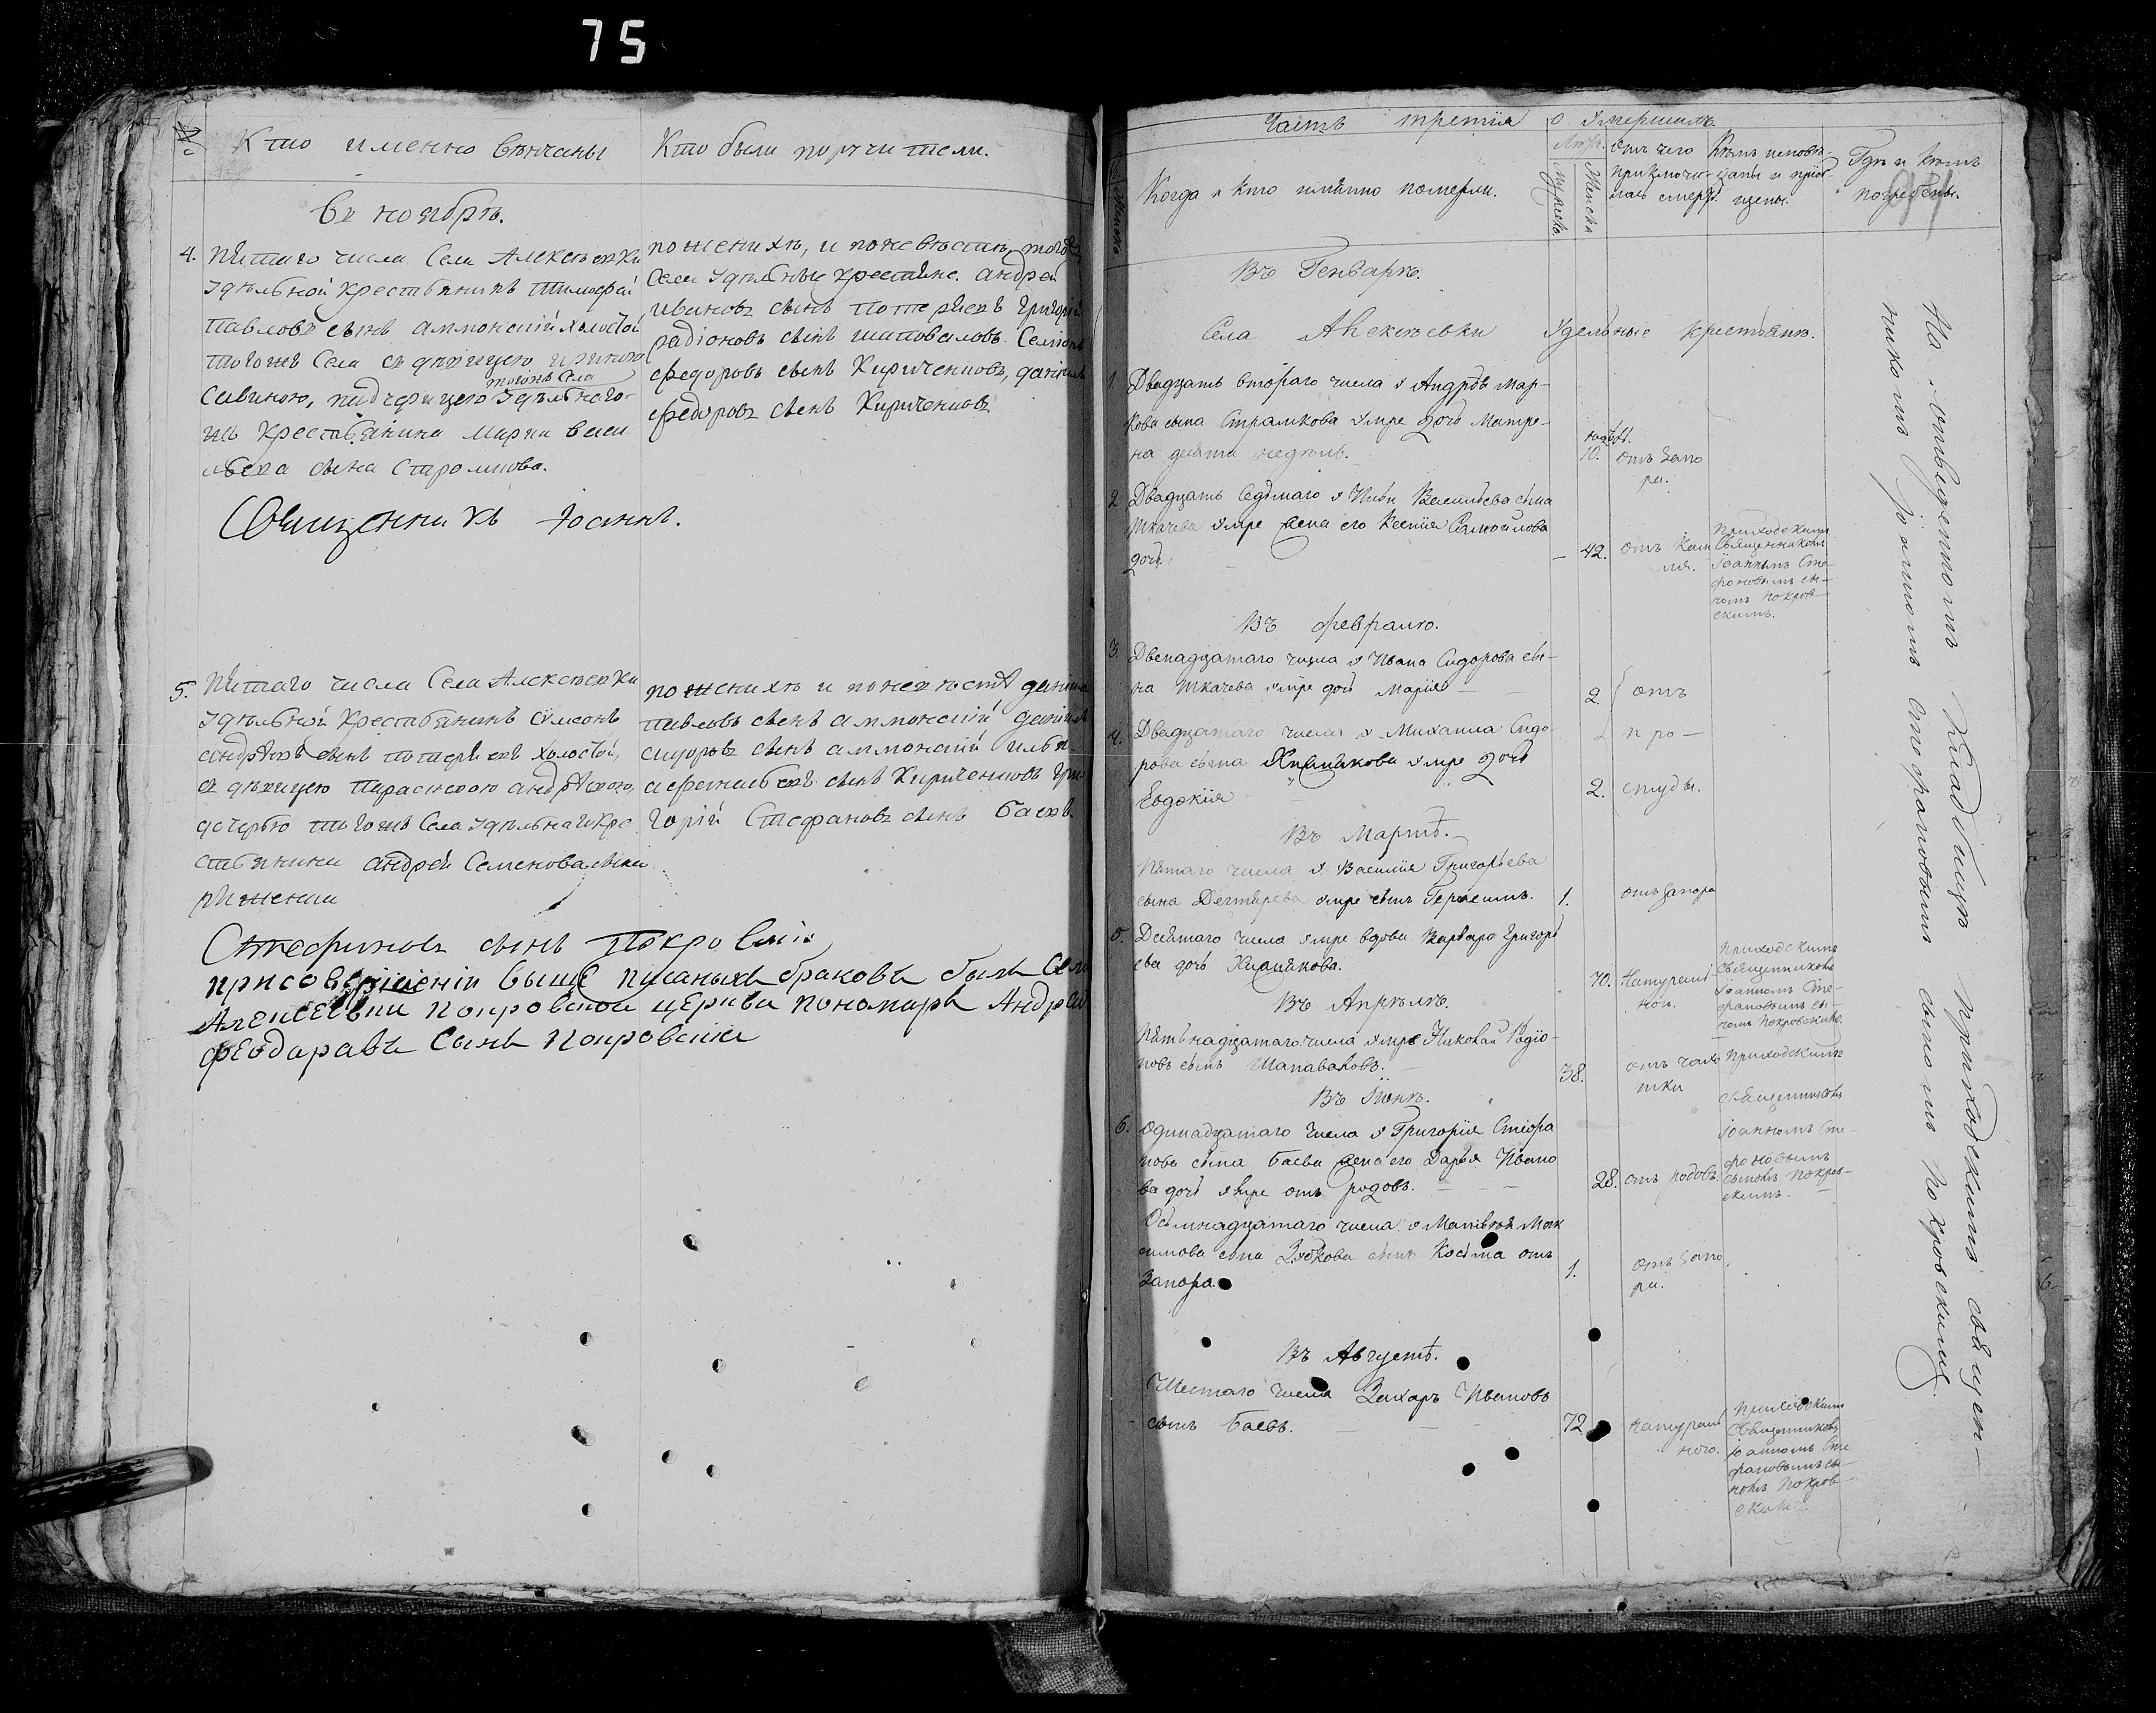 75
№
Кто именно венчаны
Кто были поручители.
Въ ноябрѣ.
4.
Пятаго числа Села Алексѣевки
удѣльной крестьянинъ Тимофей
Павловъ сынъ аммонскій холостой
тогожъ Села съ дѣвицею
Савиною, падчерицею удѣльнаго
тогожъ Села
крестьянина Марка Васи
льева сына
Священникъ Іоаннъ.
по женихѣ, и по невѣстѣ, тогожъ
Села удѣльные крестьяне. андрей
ивановъ сынъ Григорій
радіоновъ сынъ шаповаловъ. Семіонъ
федоровъ сынъ Кириченковъ, даніилъ
федоровъ сынъ Кириченковъ.
5.
Пятаго числа Села Алексѣевки
удѣльной крестьянинъ сумеонъ
андрѣевъ сынъ холостой,
съ дѣвицею Параскевою андрѣевою,
дочерью тогожъ Села удѣльнаго кре
стьянина андрей Семенова сына
по женихѣ и по невѣстѣ
павловъ сынъ аммонскій даніилъ
сидоровъ сынъ аммонскій илья
сынъ Кириченковъ гри
горій Стефановъ сынъ Баевъ.
Стефановъ сынъ Покровскій
при совершеніи выше писаныхъ браковъ былъ Села
Алексеевки Покровской церкви пономарь Андрей
феодаравъ сынъ Покровскій
Часть третія о умершихъ
Когда и кто имянно померли.
Лѣта.
мужеска
Женска
Отъ чего
приключи-
лась смерть.
Кѣмъ исповѣ-
даны и пріоб
щены.
Гдѣ и кѣмъ
погребены.
Въ Генварѣ.
Села Алексѣевки Удельные крестьянѣ.
1.
Двадцать втораго числа у Андрѣя Мар-
кова сына Страмкова умре дочь Матре-
на десяти недѣль.
недѣл.
10.
отъ Запо
ра.
2
Двадцать Седьмаго у Ильи Васильева сына
Ткачева умре жена его Ксенія Самойлова
дочь.
42.
отъ Каш
ля.
Приходскимъ
Священникомъ
Іоанномъ Сте-
фановымъ сы-
номъ Покров-
скимъ.
Въ февралѣ.
3.
Двенадцатаго числа у Ивана Сидорова сы-
на Ткачева умре дочь Марія
2.
отъ
4.
Двадцатаго числа у Михаила Сидо-
рова сына умре дочь
Евдокія
2.
про-
студы.
Въ Мартѣ.
Пятаго числа у Василія Григорьева
сына Дегтярева умре сынъ Герасимъ.
1.
отъ запора
5.
Десятаго числа умре вдова Варвара Григорь
ева дочь Хижнякова.
70.
Натураль
ной.
Приходскимъ
Священникомъ
Іоанномъ Сте-
фановымъ сы-
номъ Покровскимъ.
Въ Апрѣлѣ.
Пятьнадцатаго числа умре Николай Радіо-
новъ сынъ Шапаваловъ.
38.
отъ чахо
тки
Приходскимъ
священникомъ
Іоанномъ Сте-
фановымъ
сыномъ Покров-
скимъ.
Въ Іюнѣ.
6.
Одинадцатаго числа у Григорія Стефа
нова сына Баева жена его Дарья Ивано
ва дочь умре отъ родовъ.
28.
отъ родовъ.
Осьмнадцатаго числа у Матвѣя Мак
симова сына Зубкова сынъ Косьма отъ
Запора
1.
отъ Запо
ра.
Въ Августѣ.
Шестаго числа Захаръ Ивановъ
сынъ Баевъ.
72
натураль
ного.
Приходскимъ
Священникомъ
Іоанномъ Сте
фановымъ сы-
номъ Покров-
скимъ
На отведенномъ Кладбищѣ приходскимъ священ-
никомъ Іоанномъ Стефановымъ сыномъ Покровскимъ.